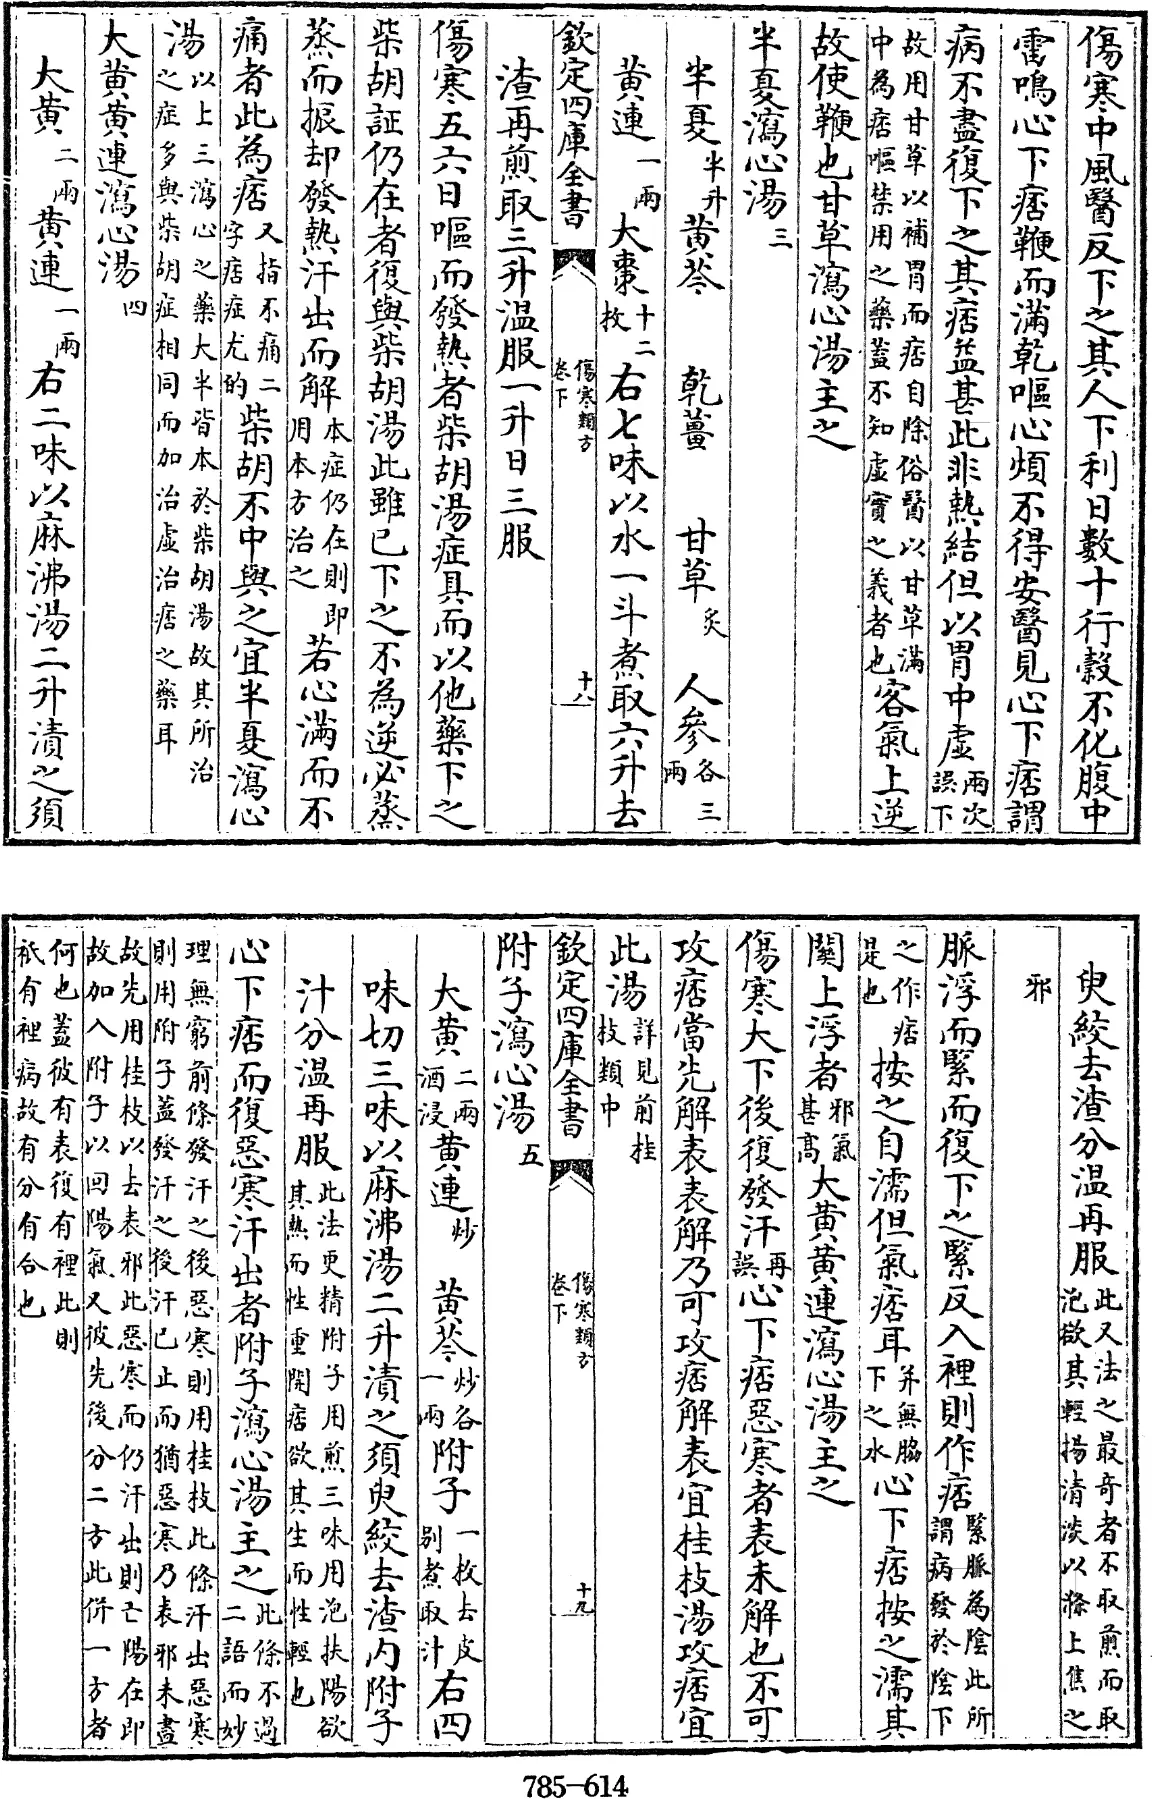 傷寒中風醫反下之其人下利日數十行穀不化腹中
雷鳴心下痞鞕而滿乾嘔心煩不得安醫見心下痞謂
病不盡復下之其痞益甚此非熱結但以胃中虛兩次誤下
故用甘草以補胃而痞自除俗醫以甘草滿中為痞嘔禁用之藥蓋不知虛實之義者也客氣上逆
故使鞕也甘草瀉心湯主之
半夏瀉心湯三
半夏半升 黃芩 乾薑 甘草炙 人參各三兩
黃連一兩 大棗十二枚 右七味以水一斗煮取六升去
欽定四庫全書 傷寒類方卷下 十八
渣再煎取三升温服一升日三服
傷寒五六日嘔而發熱者柴胡湯症具而以他藥下之
柴胡証仍在者復與柴胡湯此雖已下之不為逆必蒸
蒸而振却發熱汗出而解本症仍在則即用本方治之若心滿而不
痛者此為痞又指不痛二字痞症尤的柴胡不中與之宜半夏瀉心
湯以上三瀉心之藥大半皆本於柴胡湯故其所治之症多與柴胡症相同而加治虛治痞之藥耳
大黃黃連瀉心湯四
大黃二兩 黃連一兩 右二味以麻沸湯二升漬之須
臾絞去渣分温再服此又法之最奇者不取煎而取泡欲其輕揚清淡以滌上焦之
邪
脈浮而緊而復下之緊反入裡則作痞緊脈為陰此所謂病發於陰下
之作痞是也按之自濡但氣痞耳并無脇下之水心下痞按之濡其
關上浮者邪氣甚高大黃黃連瀉心湯主之
傷寒大下後復發汗再誤心下痞惡寒者表未解也不可
攻痞當先解表表解乃可攻痞解表宜桂枝湯攻痞宜
此湯詳見前桂枝類中
欽定四庫全書 傷寒類方卷下 十九
附子瀉心湯五
大黃二兩酒浸 黃連炒 黃芩炒各一兩 附子一枚去皮别煮取汁 右四
味切三味以麻沸湯二升漬之須臾絞去渣内附子
汁分温再服此法更精附子用煎三味用泡扶陽欲其熱而性重開痞欲其生而性輕也
心下痞而復惡寒汗出者附子瀉心湯主之此條不過二語而妙
理無窮前條發汗之後惡寒則用桂枝此條汗出惡寒則用附子蓋發汗之後汗已止而猶惡寒乃表邪未盡
故先用桂枝以去表邪此惡寒而仍汗出則亡陽在即故加入附子以回陽氣又彼先後分二方此併一方者
何也蓋彼有表復有裡此則衹有裡病故有分有合也
785-614